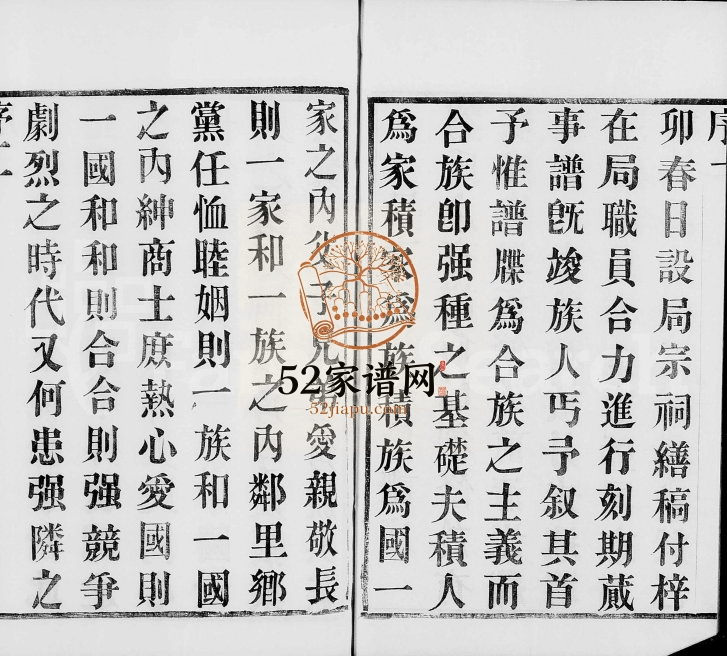 序一
卯春日設局宗祠繕稿付梓
在局職員合力進行刻期蕆
事譜旣竣族人丐予叙其首
予惟譜牒爲合族之主義而
合族卽强種之基礎夫積人
爲家積家爲族積族爲國一
家之內父子兄弟愛親敬長
則一家和一族之內鄰里鄉
黨任恤睦姻則一族和一國
之內紳商士庶熱心愛國則
一國和和則合合則强競爭
劇烈之時代又何患强隣之
序二
52家谱网
52jiapu.com